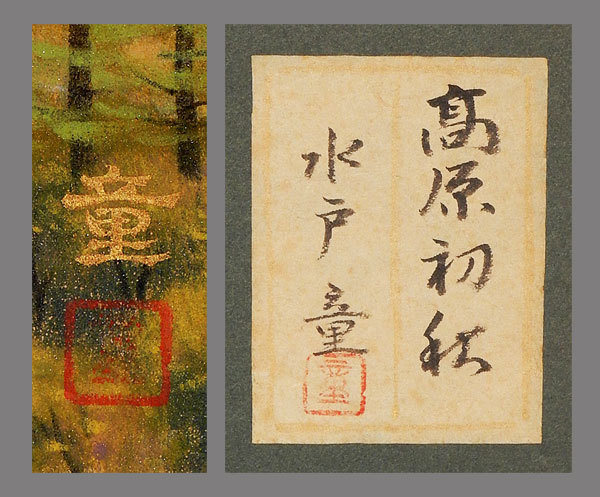 童
高原初秋
水戸童
童